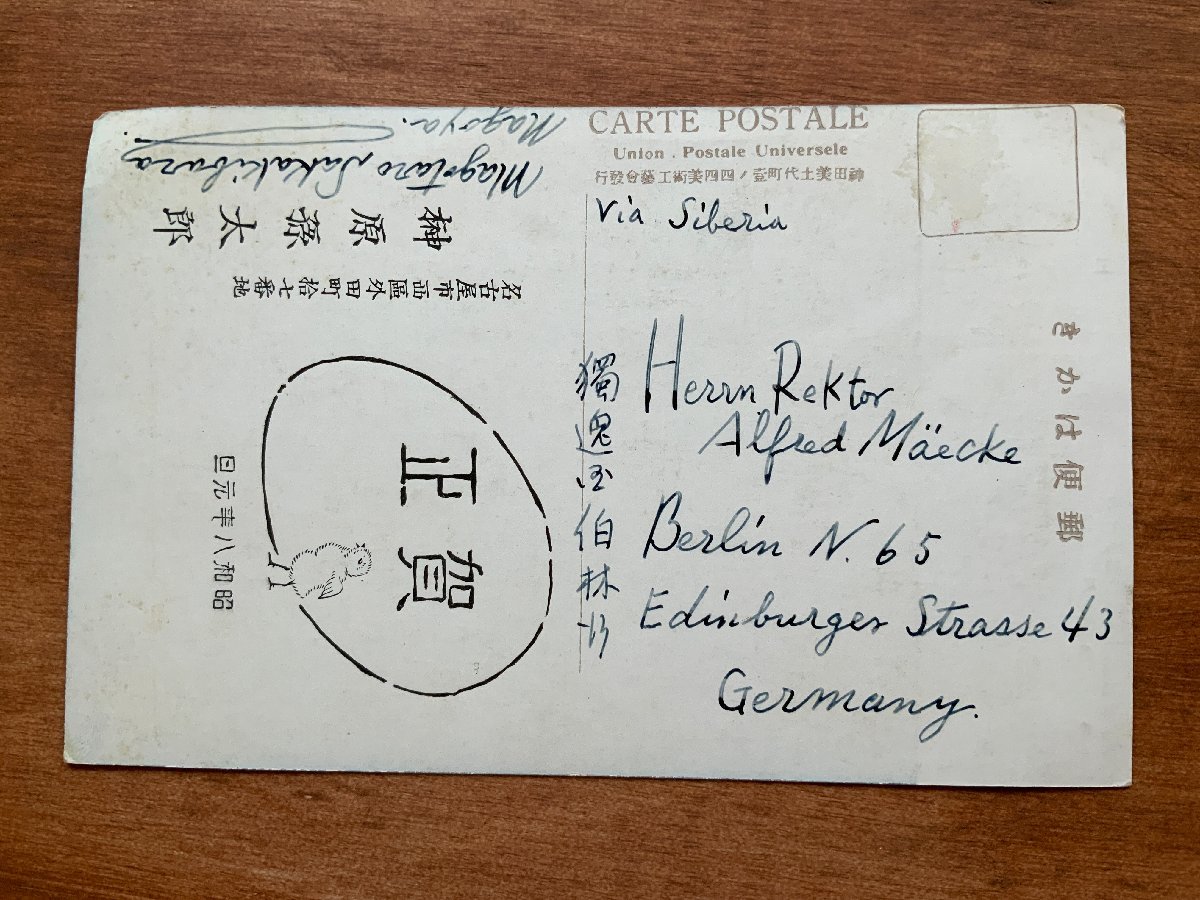 CARTE POSTALE
Union Postale Universele
神田美土代町壹ノ四四美術工藝會發行
Via Siberia
郵便はかき
Herrn Rektor
Alfred Mäecke
Berlin N. 65
Edinburger Strasse 43
Germany.
獨逸国伯林
賀正
昭和八年元旦
名古屋市西區外田町拾七番地
榊原孫太郎
Magotaro Sakakibara
Nagoya.